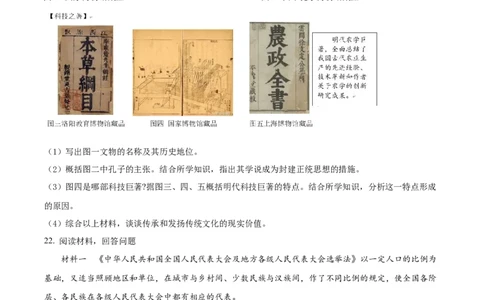 【科技之著】
本草綱目
農政全書
明代农学巨
著，全面总结了
我国古代农业生
产的先进经验、
技术革新和作者
关于农学的创新
研究成果。
图三洛阳政育博物馆藏品
图四 国家博物馆藏品
图五上海博物馆藏品
（1）写出图一文物的名称及其历史地位。
（2）概括图二中孔子的主张。结合所学知识，指出其学说成为封建正统思想的措施。
（3）图四是哪部科技巨著?据图三、四、五概括明代科技巨著的特点。结合所学知识，分析这一特点形成
的原因。
（4）综合以上材料，谈谈传承和发扬传统文化的现实价值。
22. 阅读材料，回答问题
材料一 《中华人民共和国全国人民代表大会及地方各级人民代表大会选举法》以一定人口的比例为
基础，又适当照顾地区和单位，在城市与乡村间、少数民族与汉族间，作了不同比例的规定，使全国各阶
层、各民族在各级人民代表大会中都有相应的代表。